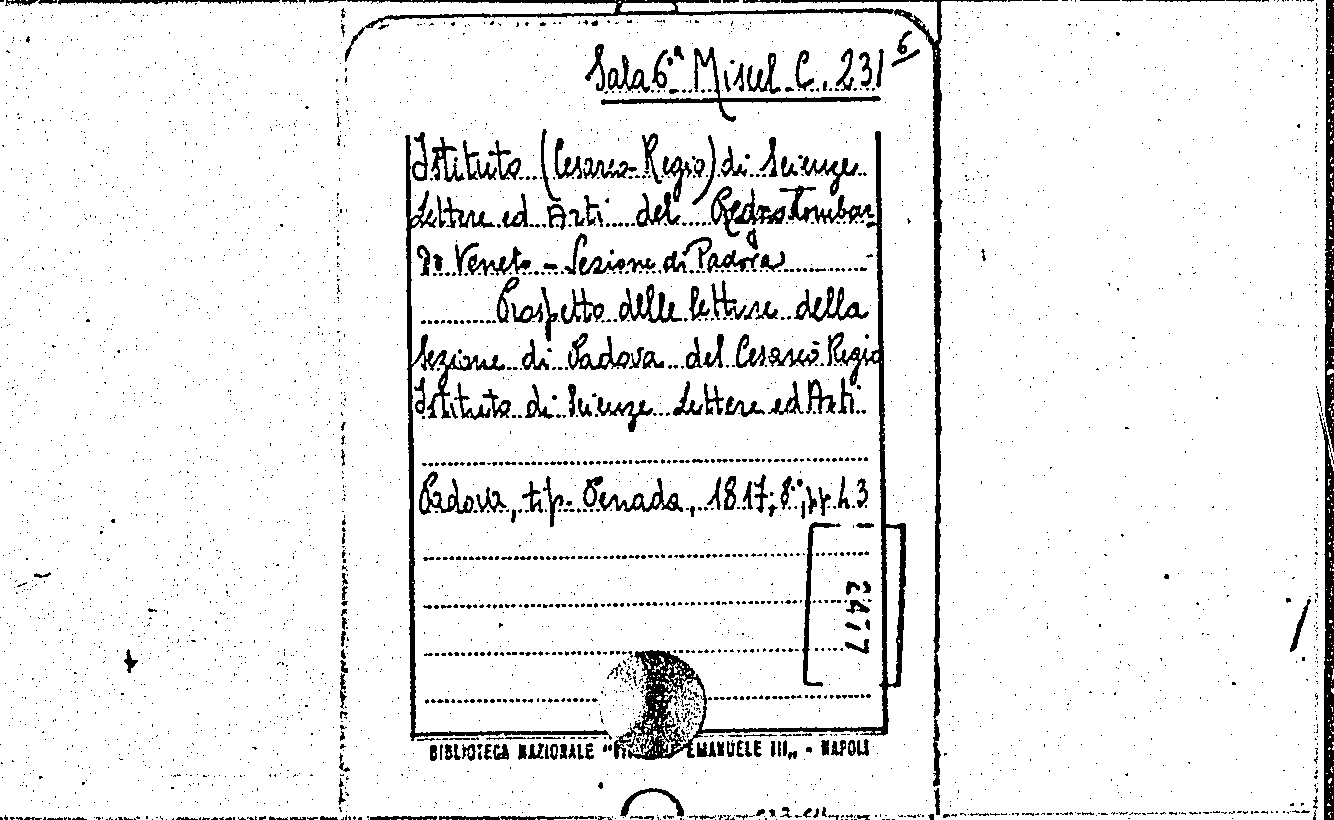 Sala 6.ª Miscel. C. 231 6
Istituto (Cesareo-Regio) di Scienze
Lettere ed Arti del Regno Lombar-
do Veneto - Sezione di Padova
Prospetto delle letture della
Sezione di Padova del Cesareo Regio
Istituto di Scienze Lettere ed Arti
Padova, tip. Penada, 1817; 8°; pp 43
2477
BIBLIOTECA NAZIONALE " EMANUELE III„ - NAPOLI